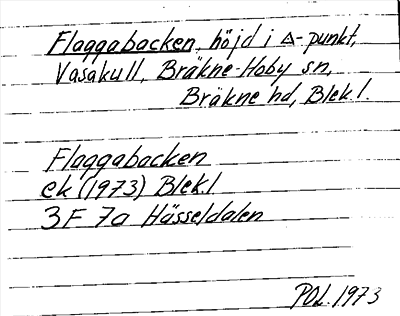 Flaggabacken, höjd i △-punkt,
Vasakull, Bräkne-Hoby sn,
Bräkne hd, Blekl.
Flaggabacken
ek (1973) Blekl
3F 7a Hässeldalen
POL. 1973